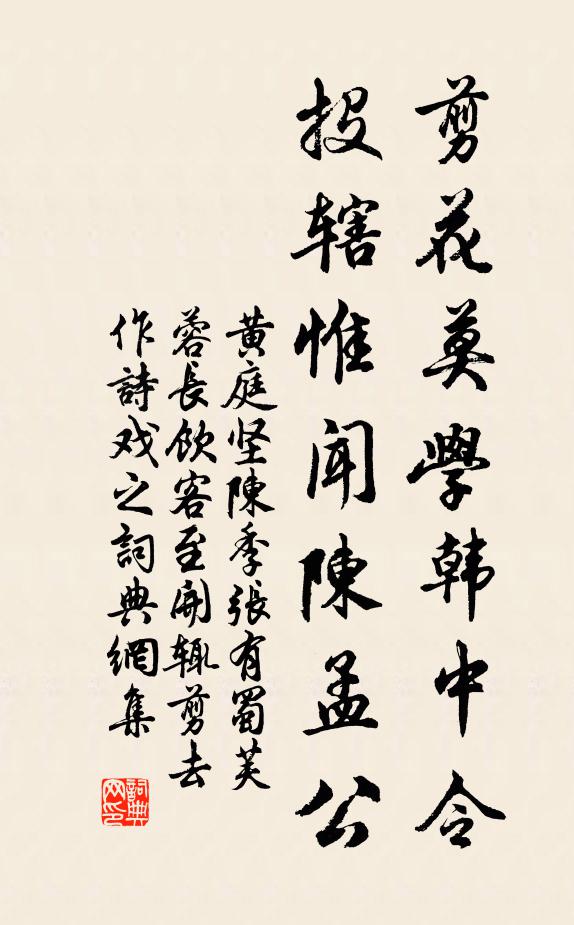 剪花莫學韩中令
投辖惟闻陳孟公
黄庭坚陳季張有蜀芙
蓉長飲客至開辄剪去
作詩戏之詞典網集
詞典网印